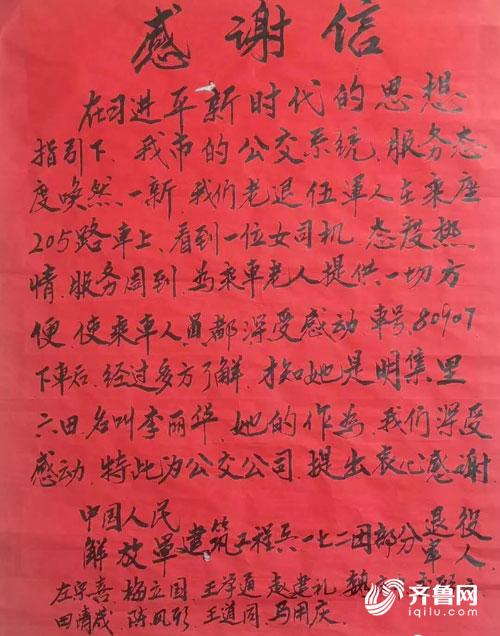 感谢信
在习近平新时代的思想
指引下、我市的公交系统、服务态
度唤然一新、我们老退伍軍人在乘座
205路車上、看到一位女司机、态度热
情、服务周到、为乘車老人提供一切方
便、使乘車人員都深受感动、車号80907
下車后、经过多方了解、才知她是明集里
六田、名叫李丽华、她的作為、我们深受
感动、特此为公交公司、提出衷心感谢
中国人民
解放軍建筑工程兵一七二团部分退役
軍人
左宗喜 梅立国、王学道 赵建礼 魏
田清茂 陈凤彤、王道园 马用庆
齐鲁网
iqilu.com